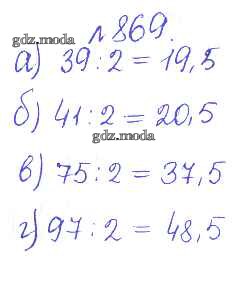 № 869.
gdz.moda
а) 39 : 2 = 19,5
б) 41 : 2 = 20,5
gdz.moda
в) 75 : 2 = 37,5
г) 97 : 2 = 48,5